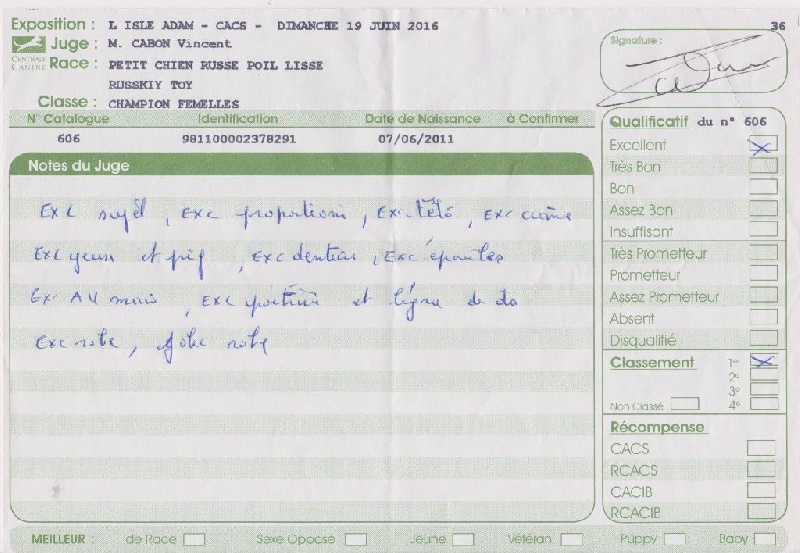 Exposition : L ISLE ADAM - CACS - DIMANCHE 19 JUIN 2016
36
Juge : M. CABON Vincent
CENTRALE CANINE
Race : PETIT CHIEN RUSSE POIL LISSE
RUSSKIY TOY
Classe : CHAMPION FEMELLES
Signature :
N° Catalogue Identification Date de Naissance à Confirmer
606 981100002378291 07/06/2011
Notes du Juge
Exc sujet, Exc proportions, Exc tête, Exc crâne
Exc yeux et pig, Exc dentition, Exc épaules
Exc AV main, Exc poitrine et ligne de dos
Exc robe, jolie robe
Qualificatif du n° 606
Excellent X
Très Bon
Bon
Assez Bon
Insuffisant
Très Prometteur
Prometteur
Assez Prometteur
Absent
Disqualifié
Classement 1er X
2e
3e
Non Classé 4e
Récompense
CACS
RCACS
CACIB
RCACIB
MEILLEUR : de Race Sexe Opposé Jeune Vétéran Puppy Baby